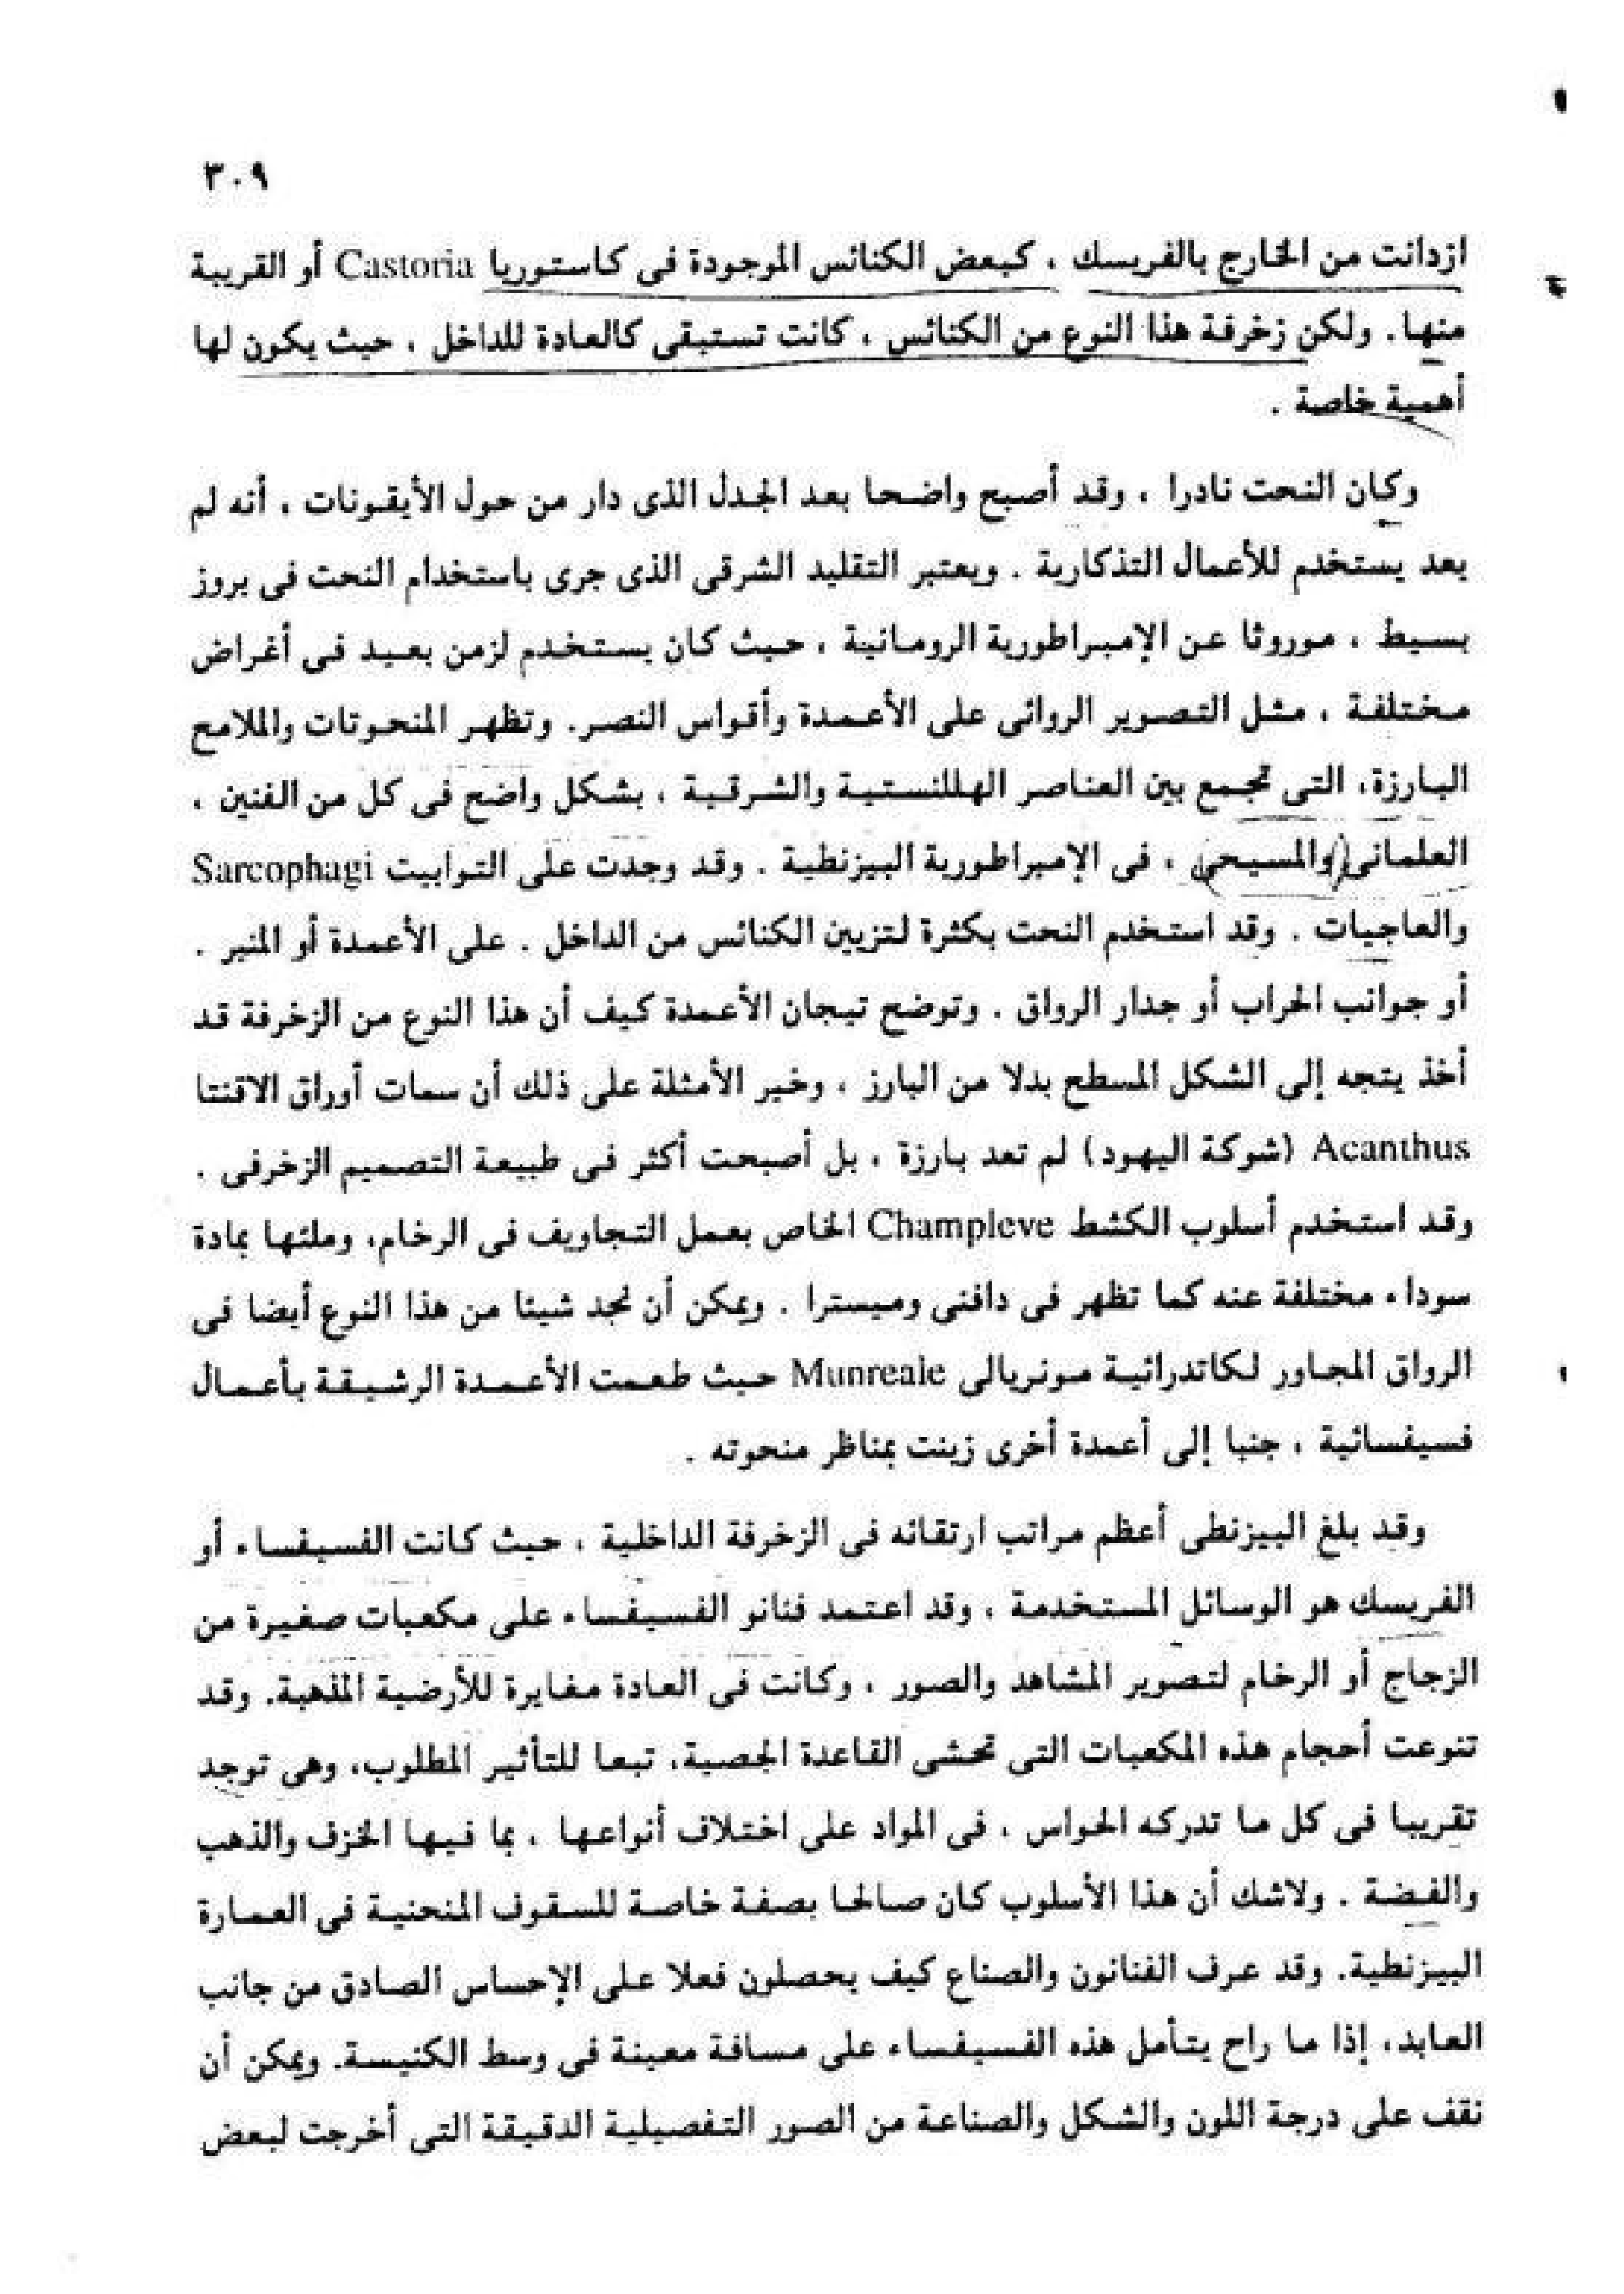 ٣٠٩
ازدانت من الخارج بالفريسك ، كبعض الكنائس الموجودة فى كاستوريا Castoria أو القريبة
منها. ولكن زخرفة هذا النوع من الكنائس ، كانت تستبقى كالعادة للداخل ، حيث يكون لها
أهمية خاصة .
وكان النحت نادرا ، وقد أصبح واضحا بعد الجدل الذى دار من حول الأيقونات ، أنه لم
يعد يستخدم للأعمال التذكارية . ويعتبر التقليد الشرقى الذى جرى باستخدام النحت فى بروز
بسيط ، موروثا عن الإمبراطورية الرومانية ، حيث كان يستخدم لزمن بعيد فى أغراض
مختلفة ، مثل التصوير الروائى على الأعمدة وأقواس النصر. وتظهر المنحوتات والملامح
البارزة، التى تجمع بين العناصر الهللنستية والشرقية ، بشكل واضح فى كل من الفنين ،
العلمانى والمسيحى ، فى الإمبراطورية البيزنطية . وقد وجدت على التوابيت Sarcophagi
والعاجيات . وقد استخدم النحت بكثرة لتزيين الكنائس من الداخل . على الأعمدة أو المنبر .
أو جوانب الحراب أو جدار الرواق . وتوضح تيجان الأعمدة كيف أن هذا النوع من الزخرفة قد
أخذ يتجه إلى الشكل المسطح بدلا من البارز ، وخير الأمثلة على ذلك أن سمات أوراق الاقنتا
Acanthus (شوكة اليهود) لم تعد بارزة ، بل أصبحت أكثر فى طبيعة التصميم الزخرفى .
وقد استخدم أسلوب الكشط Champleve الخاص بعمل التجاويف فى الرخام، وملئها بمادة
سوداء مختلفة عنه كما تظهر فى دافنى وميسترا . ويمكن أن نجد شيئا من هذا النوع أيضا فى
الرواق المجاور لكاتدرائية مونريالى Munreale حيث طعمت الأعمدة الرشيقة بأعمال
فسيفسائية ، جنبا إلى أعمدة أخرى زينت بمناظر منحوته .
وقد بلغ البيزنطى أعظم مراتب ارتقائه فى الزخرفة الداخلية ، حيث كانت الفسيفساء أو
الفريسك هو الوسائل المستخدمة ، وقد اعتمد فنانو الفسيفساء على مكعبات صغيرة من
الزجاج أو الرخام لتصوير المشاهد والصور ، وكانت فى العادة مغايرة للأرضية المذهبة. وقد
تنوعت أحجام هذه المكعبات التى تحشى القاعدة الجصية، تبعا للتأثير المطلوب، وهى توجد
تقريبا فى كل ما تدركه الحواس ، فى المواد على اختلاف أنواعها ، بما فيها الخزف والذهب
والفضة . ولاشك أن هذا الأسلوب كان صالحا بصفة خاصة للسقوف المنحنية فى العمارة
البيزنطية. وقد عرف الفنانون والصناع كيف يحصلون فعلا على الإحساس الصادق من جانب
العابد، إذا ما راح يتأمل هذه الفسيفساء على مسافة معينة فى وسط الكنيسة. ويمكن أن
نقف على درجة اللون والشكل والصناعة من الصور التفصيلية الدقيقة التى أخرجت لبعض